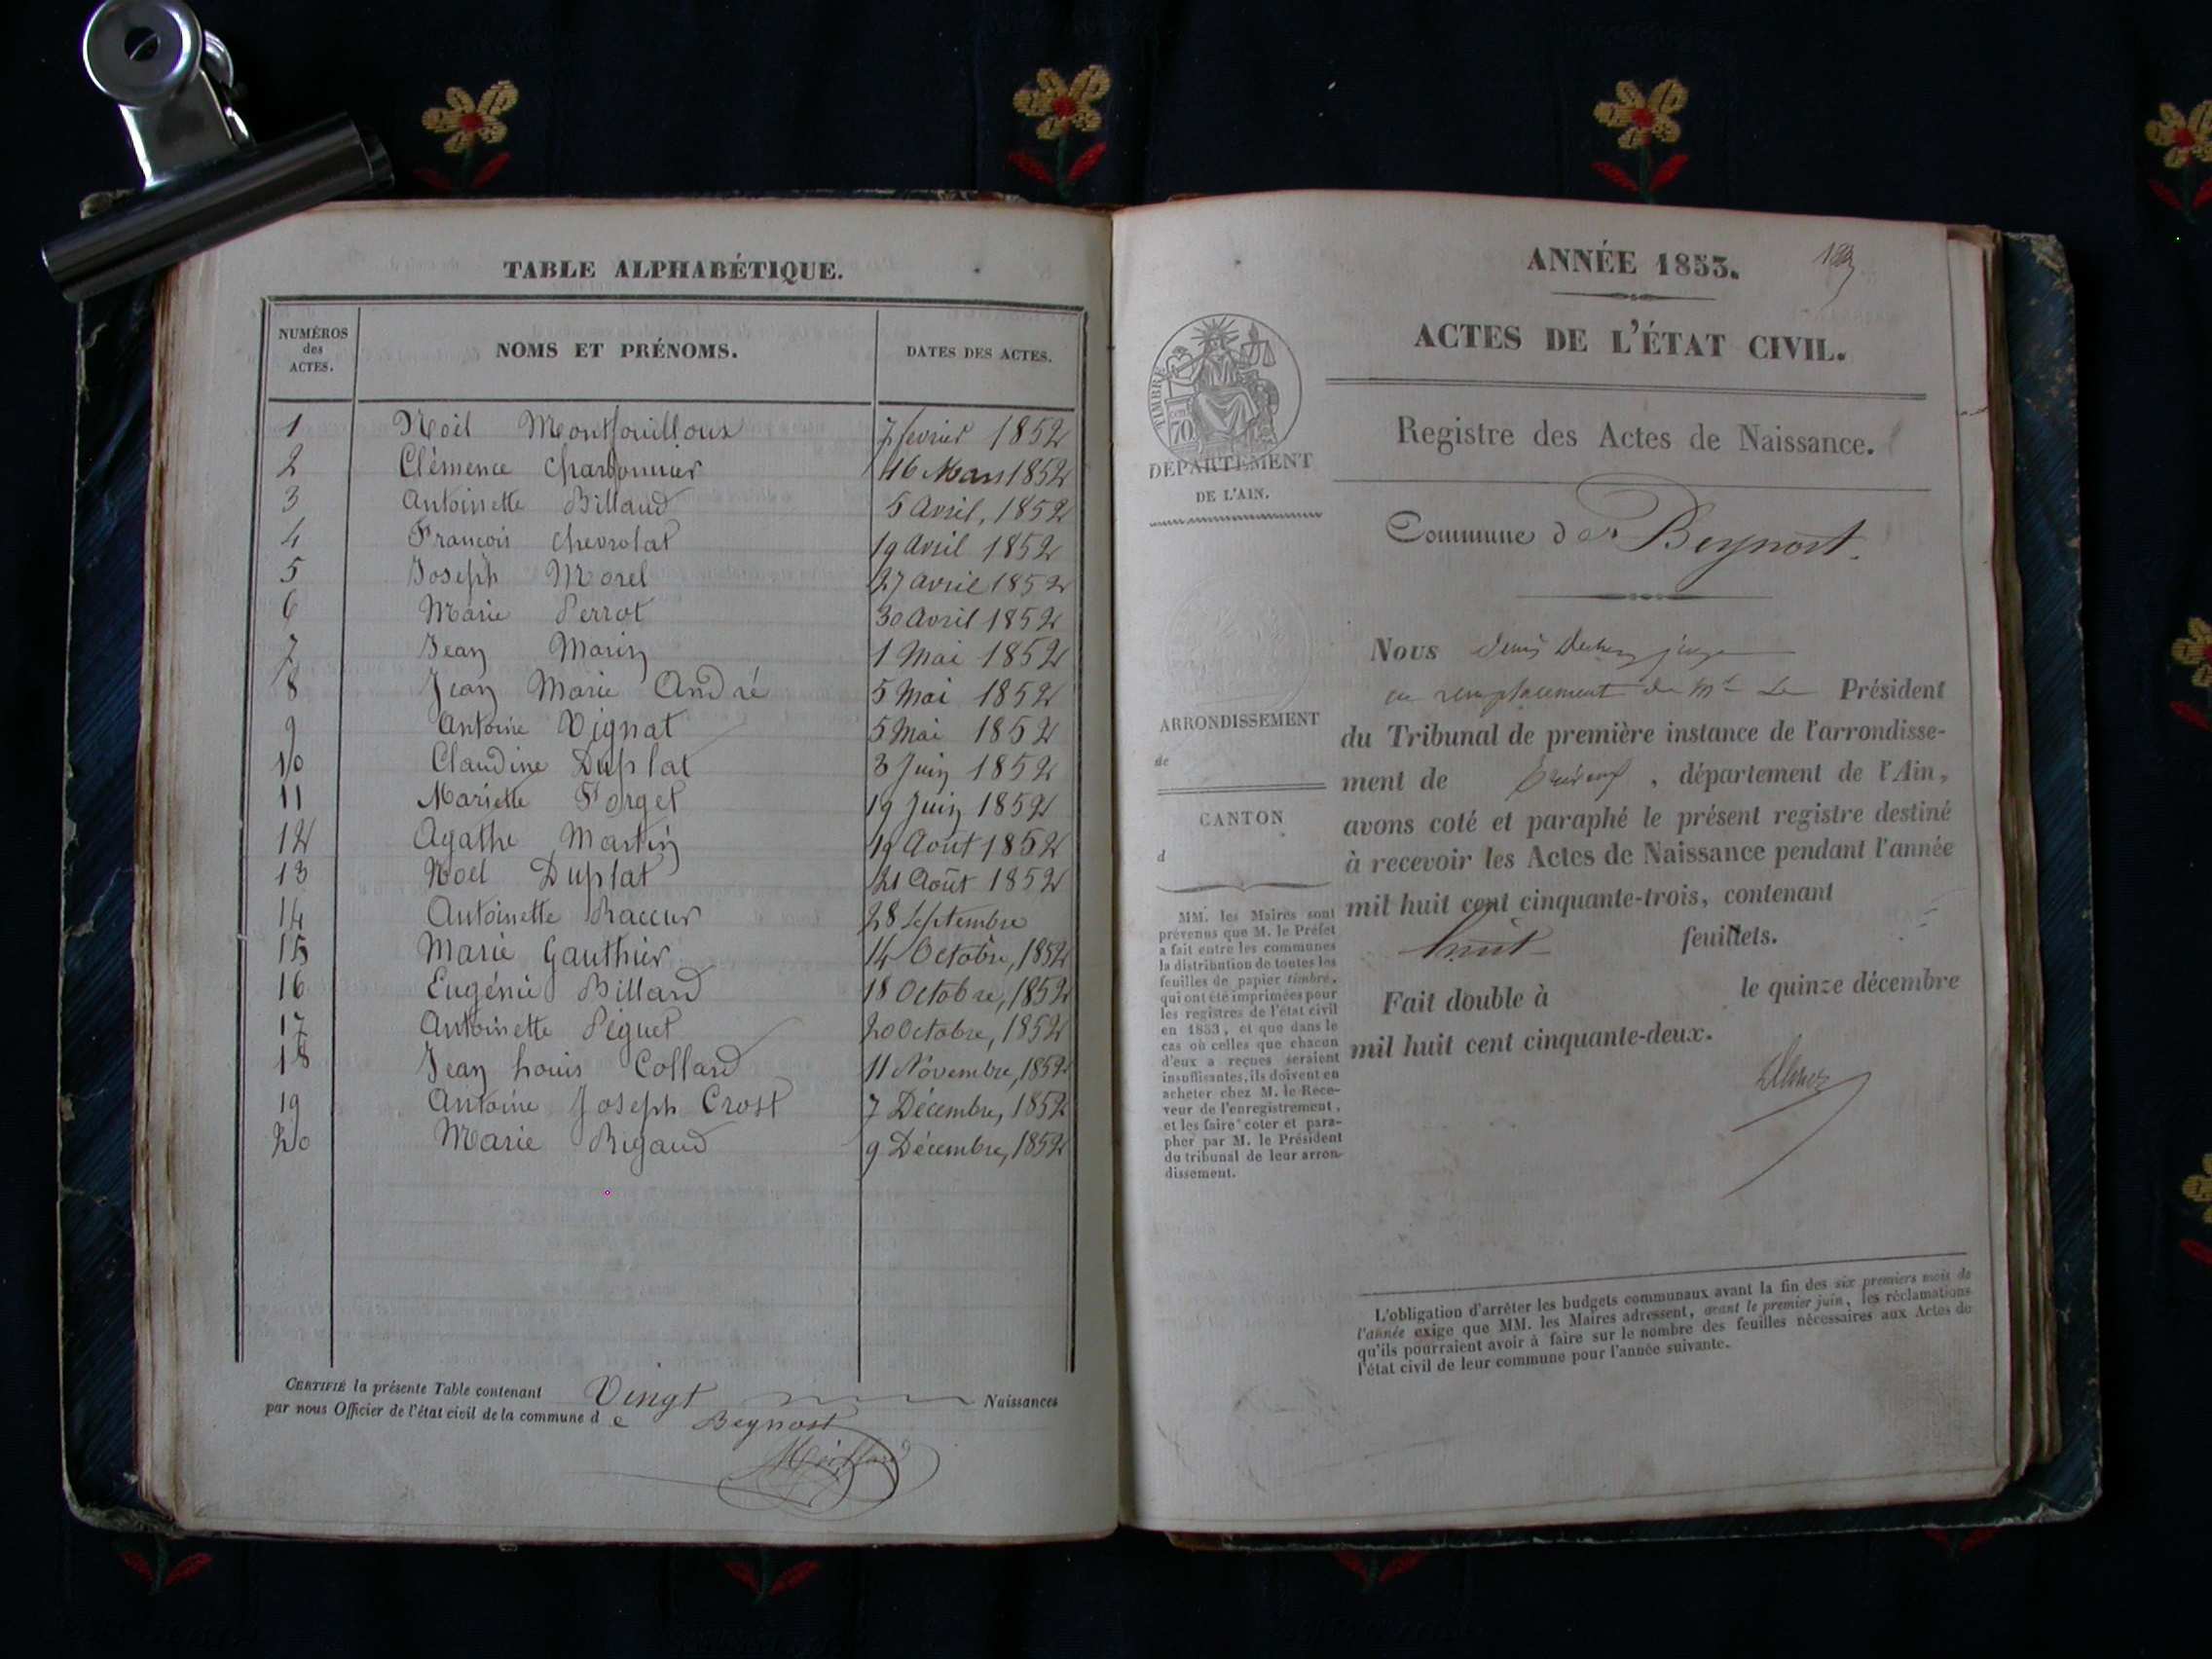 TABLE ALPHABÉTIQUE.
NUMÉROS des ACTES. NOMS ET PRÉNOMS. DATES DES ACTES.
1 Noël Montfouilloux 7 fevrier 1852
2 Clémence Charbonnier 16 Mars 1852
3 Antoinette Billaud 5 Avril, 1852
4 François Chevrolat 19 Avril 1852
5 Joseph Morel 27 Avril 1852
6 Marie Perrot 30 Avril 1852
7 Jean Marin 1 Mai 1852
8 Jean Marie André 5 Mai 1852
9 Antoine Vignat 5 Mai 1852
10 Claudine Duplat 3 Juin 1852
11 Mariette Forget 19 Juin 1852
12 Agathe Martin 19 Août 1852
13 Noel Duplat 21 Août 1852
14 Antoinette 28 Septembre
15 Marie Gauthier 14 Octobre, 1852
16 Eugénie Billard 18 Octobre, 1852
17 Antoinette Péguet 20 Octobre, 1852
18 Jean Louis Collard 11 Novembre, 1852
19 Antoine Joseph Crost 7 Décembre, 1852
20 Marie Rigaud 9 Décembre, 1852
CERTIFIÉ la présente Table contenant Vingt Naissances
par nous Officier de l'état civil de la commune d e Beynost
ANNÉE 1853.
ACTES DE L'ÉTAT CIVIL.
Registre des Actes de Naissance.
Commune de Beynost.
TIMBRE
70 cent
DÉPARTEMENT
DE L'AIN.
ARRONDISSEMENT
de
CANTON
d
MM. les Maires sont
prévenus que M. le Préfet
a fait entre les communes
la distribution de toutes les
feuilles de papier timbré,
qui ont été imprimées pour
les registres de l'état civil
en 1853, et que dans le
cas où celles que chacun
d'eux a reçues seraient
insuffisantes, ils doivent en
acheter chez M. le Rece-
veur de l'enregistrement,
et les faire coter et para-
pher par M. le Président
du tribunal de leur arron-
dissement.
Nous Denis juge
en remplacement de Mr Le Président
du Tribunal de première instance de l'arrondisse-
ment de , département de l'Ain,
avons coté et paraphé le présent registre destiné
à recevoir les Actes de Naissance pendant l'année
mil huit cent cinquante-trois, contenant
huit feuillets.
Fait double à le quinze décembre
mil huit cent cinquante-deux.
L'obligation d'arrêter les budgets communaux avant la fin des six premiers mois de
l'année exige que MM. les Maires adressent, avant le premier juin, les réclamations
qu'ils pourraient avoir à faire sur le nombre des feuilles nécessaires aux Actes de
l'état civil de leur commune pour l'année suivante.